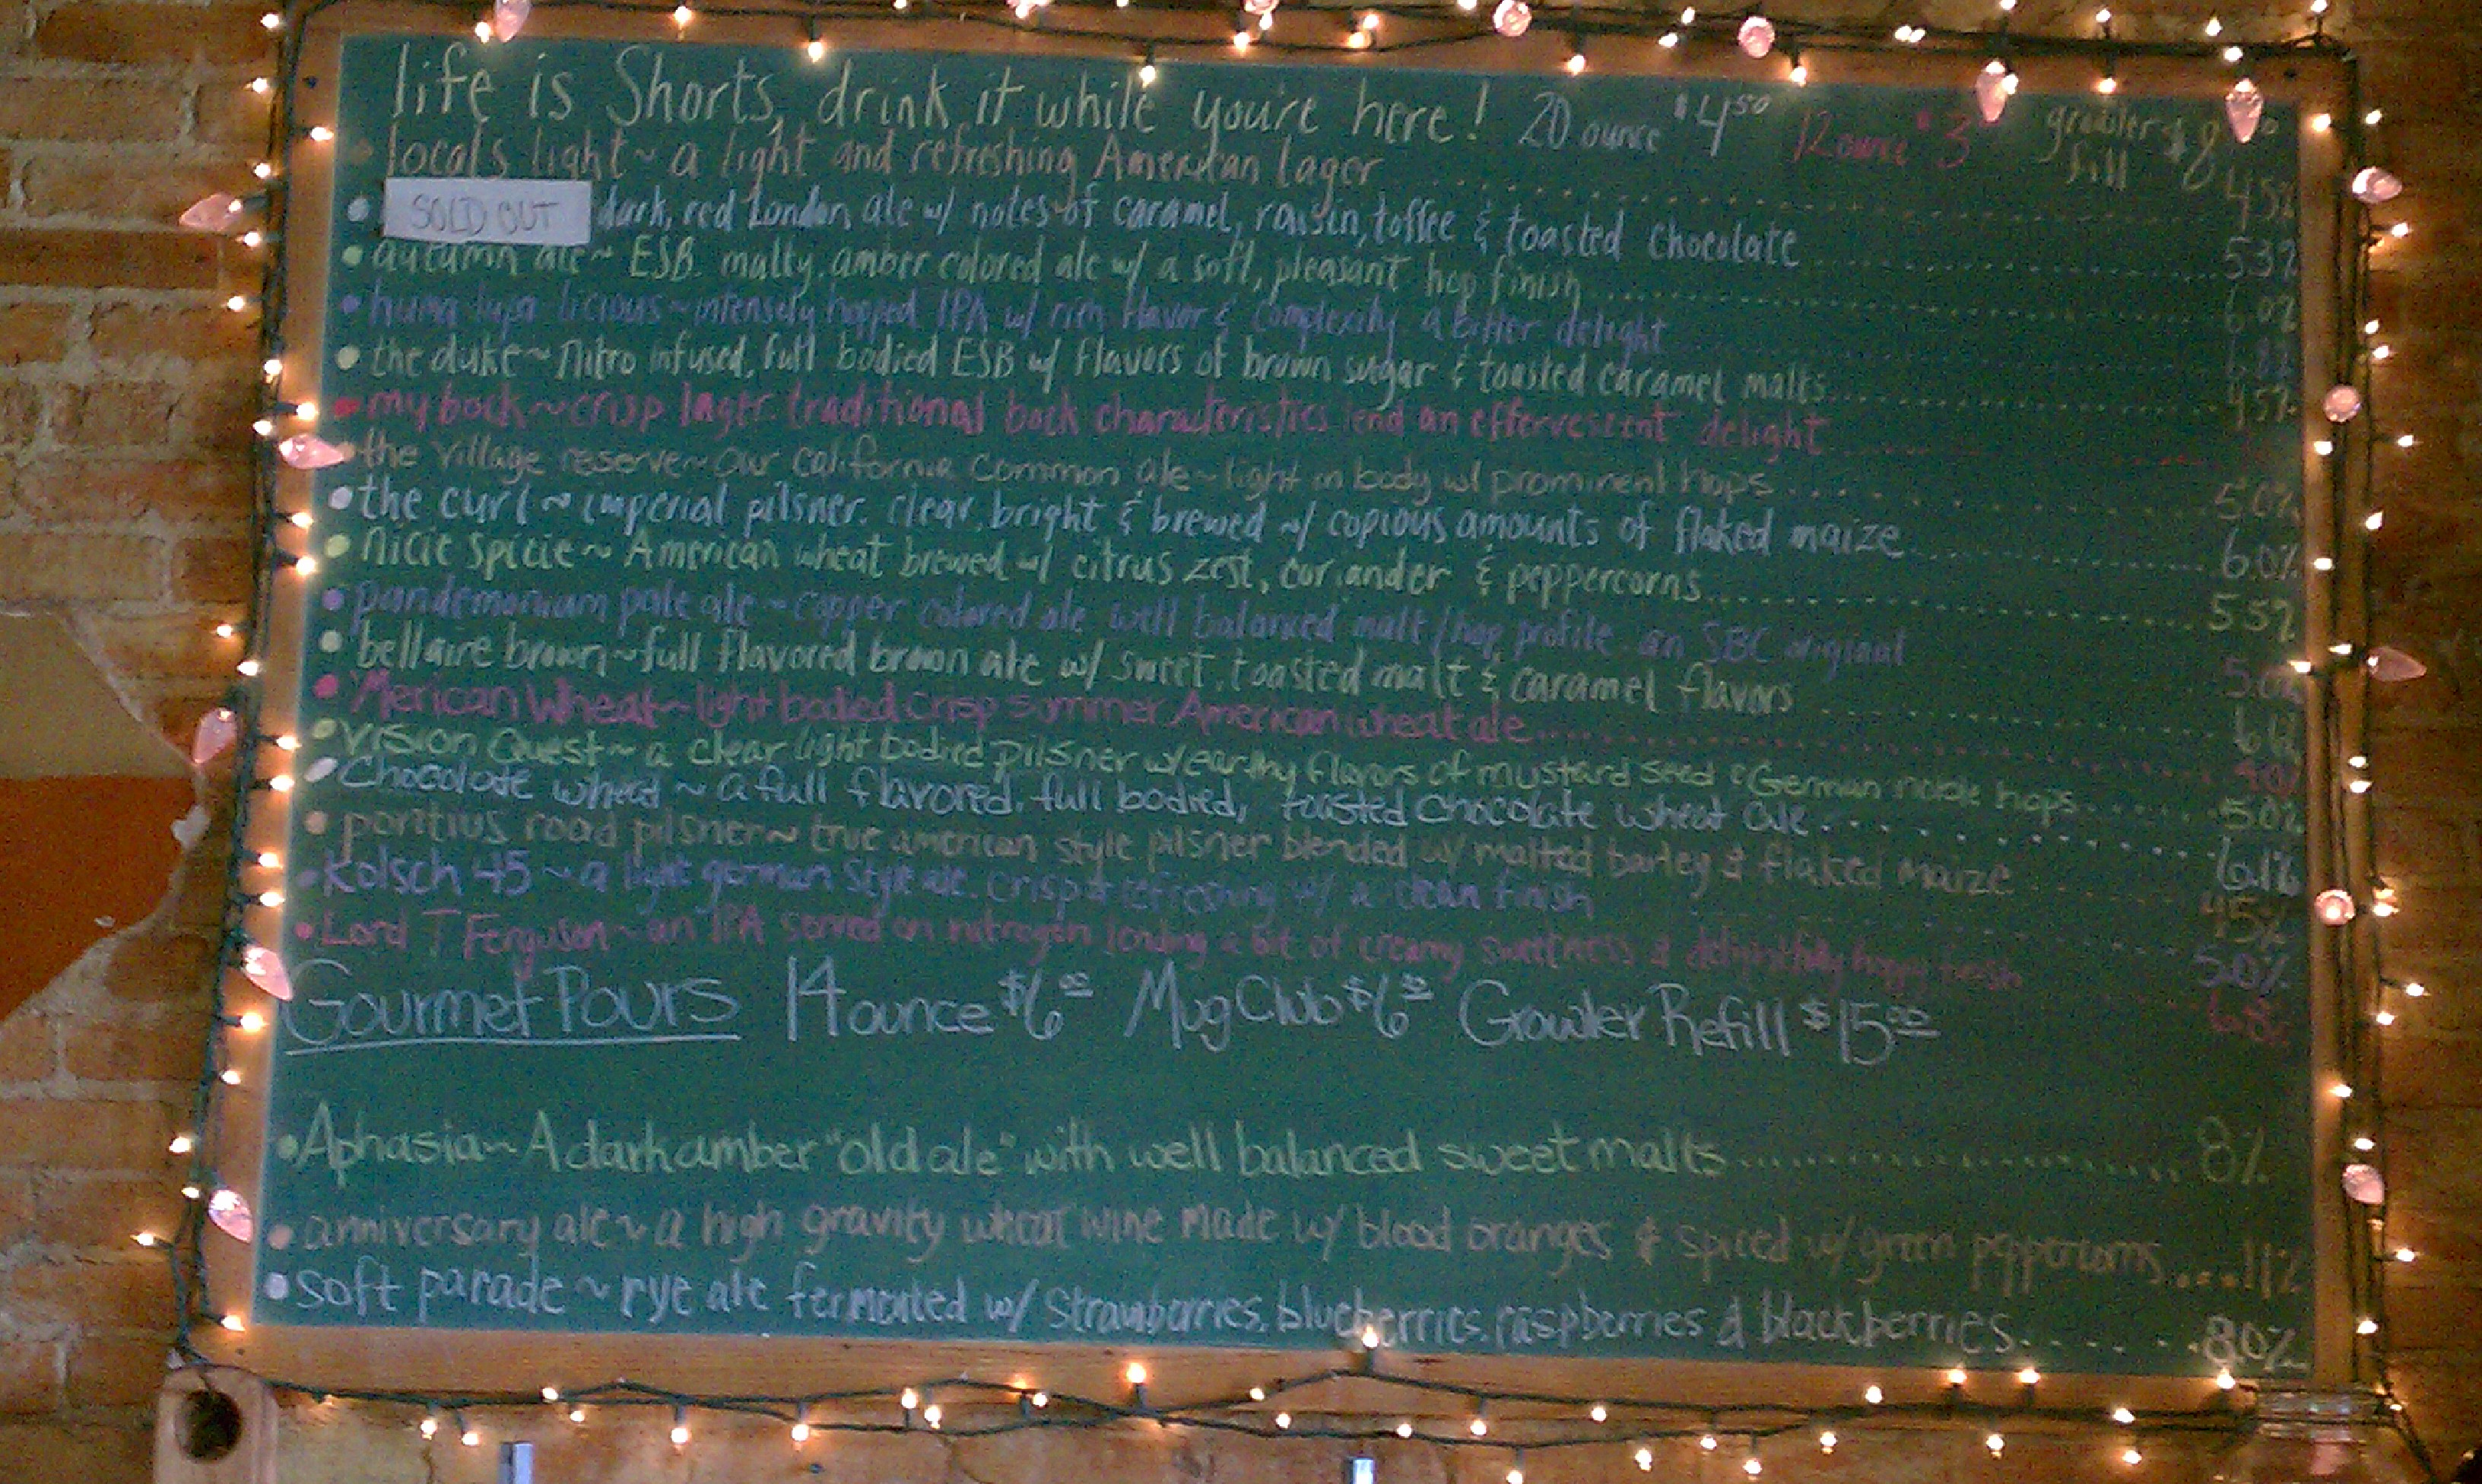 life is Shorts, drink it while you're here! 20 ounce $4.50 12 ounce $3 growler fill $8
locals light ~ a light and refreshing American lager 4.5%
SOLD OUT dark, red London ale w/ notes of caramel, raisin, toffee & toasted chocolate 5.3%
autumn ale ~ ESB. malty, amber colored ale w/ a soft, pleasant hop finish 6.0%
huma lupa licious ~ intensely hopped IPA w/ rich flavor & complexity a bitter delight
the duke ~ Nitro infused, full bodied ESB w/ flavors of brown sugar & toasted caramel malts 4.5%
my bock ~ crisp lager. traditional bock characteristics lend an effervescent delight
the village reserve ~ our california common ale ~ light in body w/ prominent hops 5.0%
the curl ~ imperial pilsner. clear, bright & brewed w/ copious amounts of flaked maize 6.0%
nicie spicie ~ American wheat brewed w/ citrus zest, coriander & peppercorns 5.5%
pandemonium pale ale ~ copper colored ale well balanced malt/hop profile. an SBC original 5.0%
bellaire brown ~ full flavored brown ale w/ sweet, toasted malt & caramel flavors
'Merican Wheat ~ light bodied crisp summer American wheat ale
Vision Quest ~ a clear light bodied pilsner w/ earthy flavors of mustard seed & German noble hops 5.0%
Chocolate wheat ~ a full flavored, full bodied, toasted chocolate wheat ale 6.1%
pontius road pilsner ~ true american style pilsner blended w/ malted barley & flaked maize 4.5%
Kolsch 45 ~ a light german style ale. crisp & refreshing w/ a clean finish 5.0%
Lord T Ferguson ~ an IPA served on nitrogen lending a bit of creamy sweetness & delightfully hoppy finish
Gourmet Pours 14 ounce $6.00 Mug Club $6.00 Growler Refill $15.00
Aphasia ~ A dark amber "old ale" with well balanced sweet malts 8%
anniversary ale ~ a high gravity wheat wine made w/ blood oranges & spiced w/ green peppercorns 11%
soft parade ~ rye ale fermented w/ strawberries, blueberries, raspberries & blackberries 8.0%